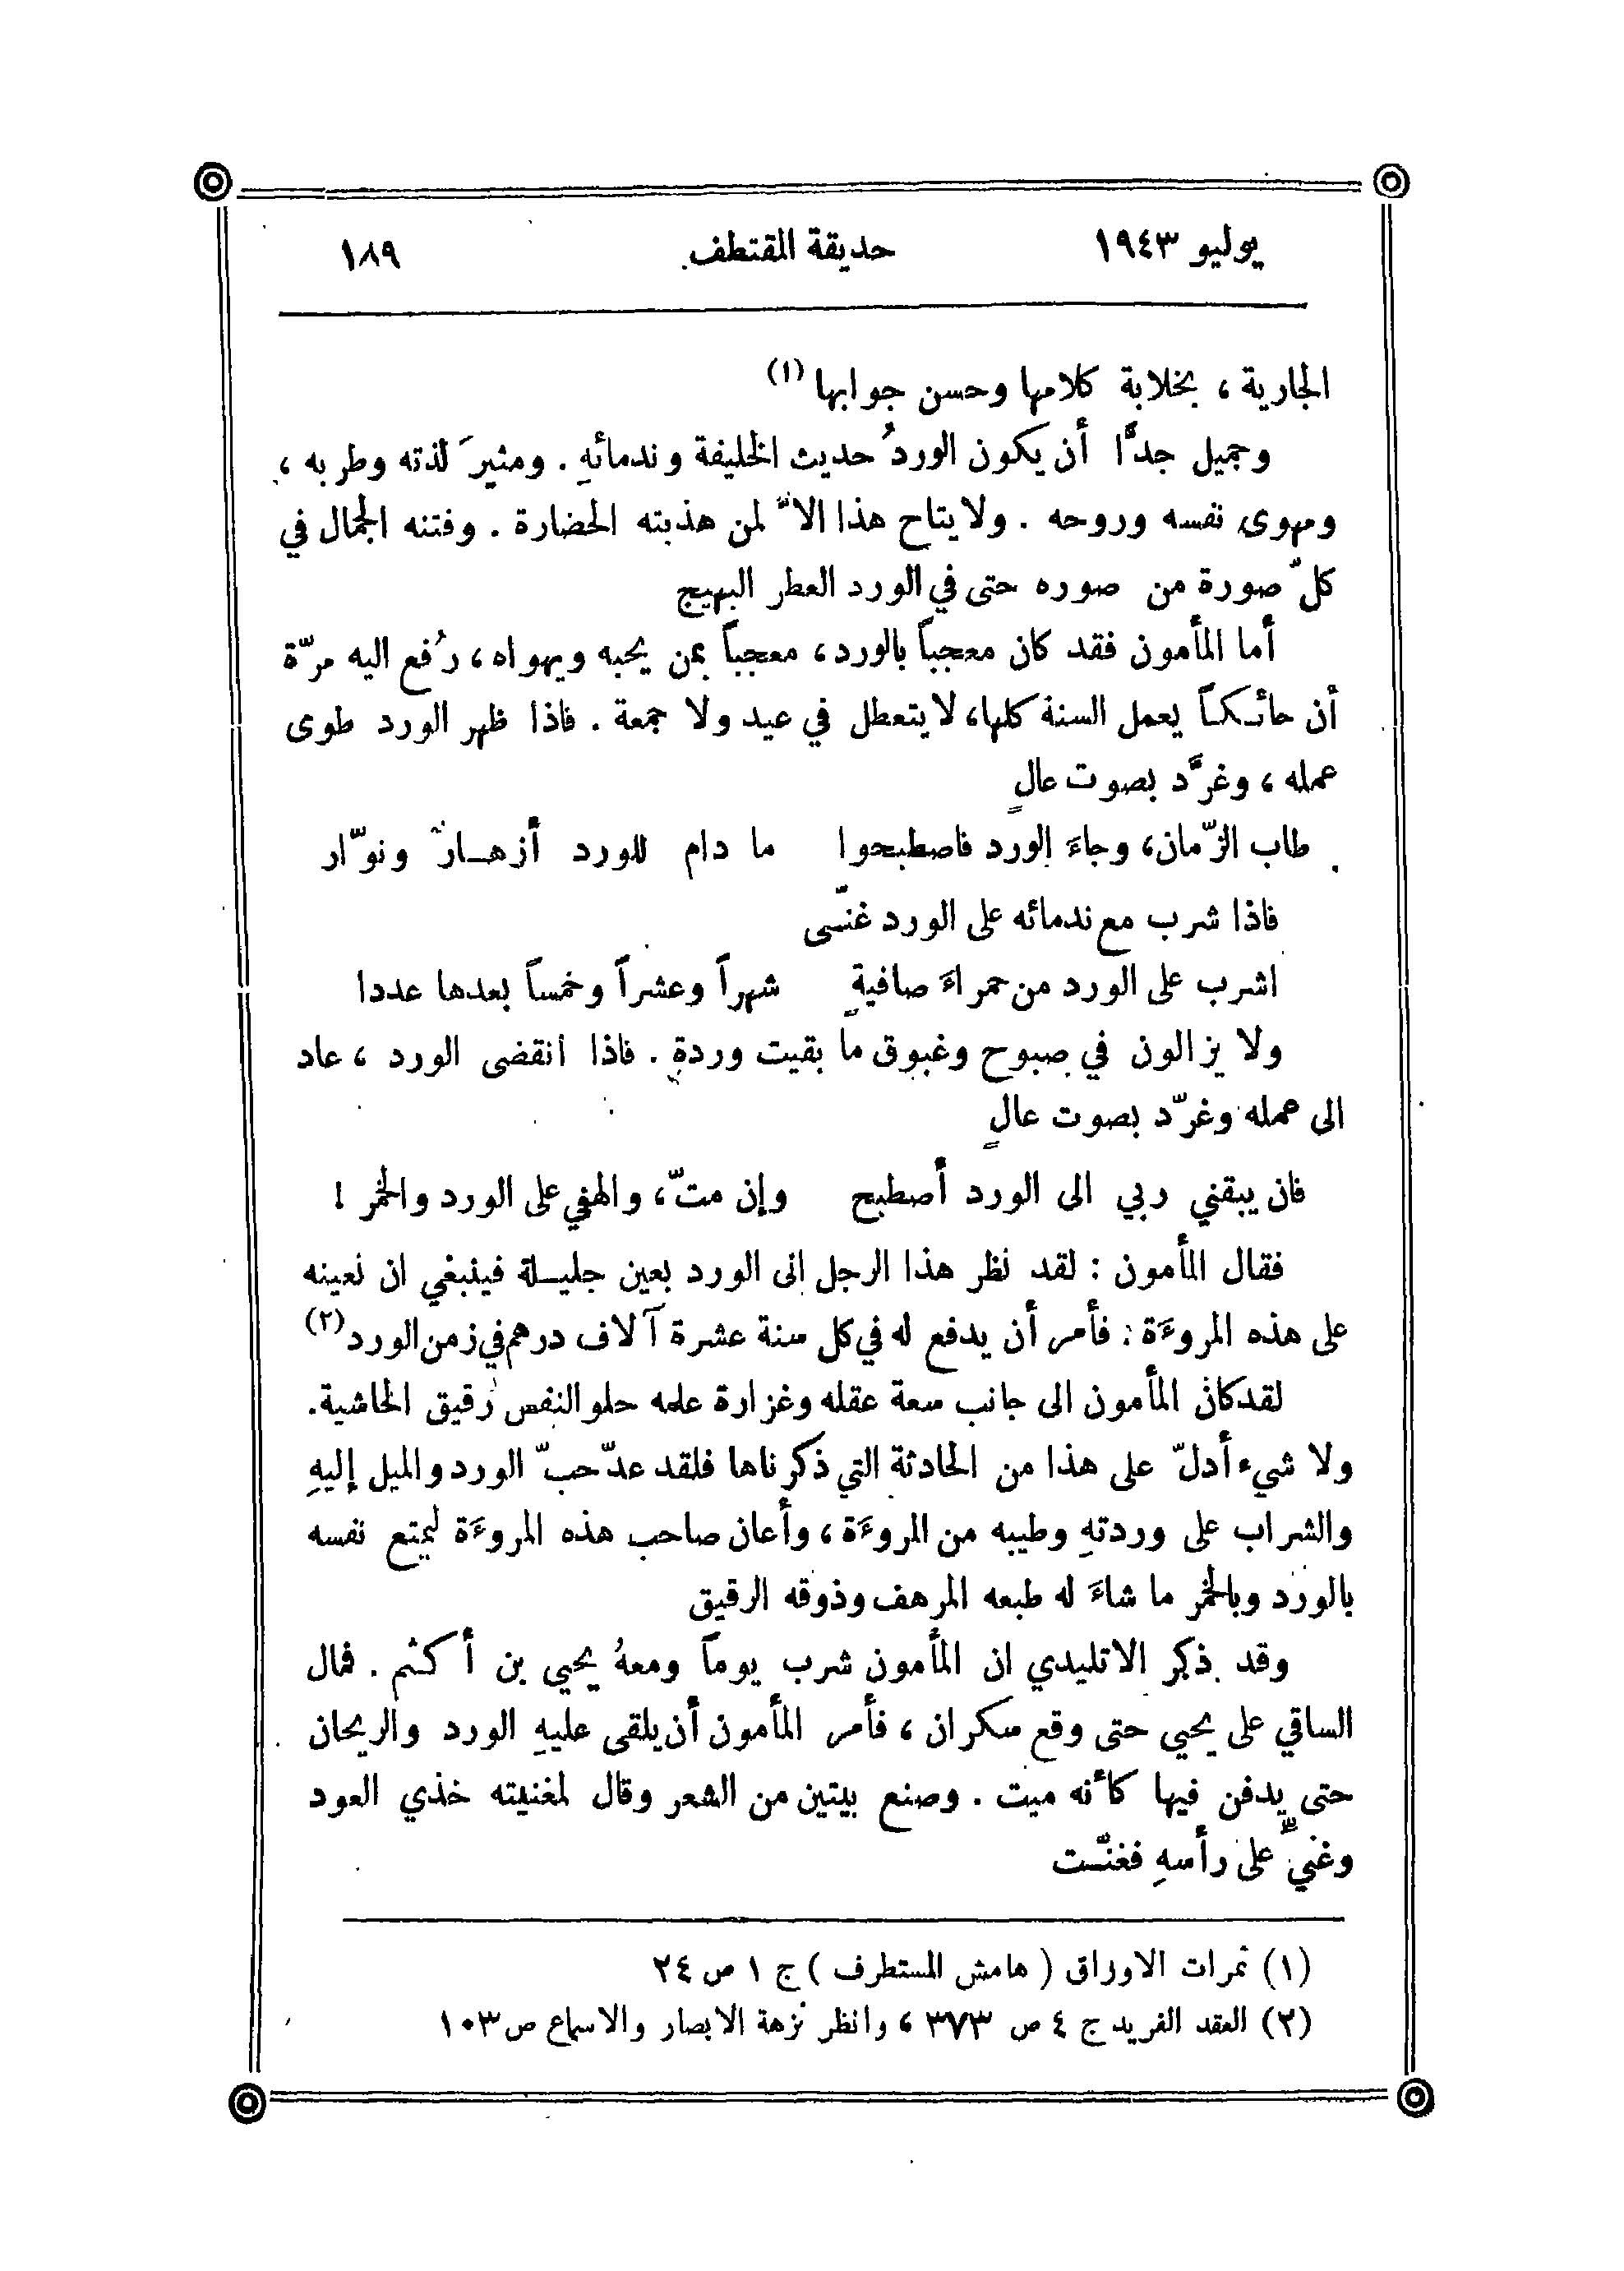 يوليو ١٩٤٣ حديقة المقتطف ١٨٩
الجارية ، بخلابة كلامها وحسن جوابها (١)
وجميل جدًّا أن يكون الوردُ حديث الخليفة وندمائهِ . ومثيرَ لذته وطربه ،
ومهوى نفسه وروحه . ولا يتاح هذا الاّ لمن هذبته الحضارة . وفتنه الجمال في
كلّ صورة من صوره حتى في الورد العطر البهيج
أما المأمون فقد كان معجباً بالورد ، معجباً بمن يحبه ويهواه ، رُفع اليه مرّة
أن حائكاً يعمل السنة كلها ، لا يتعطل في عيد ولا جمعة . فاذا ظهر الورد طوى
عمله ، وغرَّد بصوت عالٍ
طاب الزّمان ، وجاءَ الورد فاصطبحوا ما دام للورد أزهــار ونوّار
فاذا شرب مع ندمائه على الورد غنّى
اشرب على الورد من حمراءَ صافيةٍ شهراً وعشراً وخمساً بعدها عددا
ولا يزالون في صبوح وغبوق ما بقيت وردةٍ . فاذا انقضى الورد ، عاد
الى عمله وغرّد بصوت عالٍ
فان يبقني ربي الى الورد أصطبح وإن متّ ، والهفي على الورد والخمر !
فقال المأمون : لقد نظر هذا الرجل الى الورد بعين جليــلة فينبغي ان نعينه
على هذه المروءَة : فأمر أن يدفع له في كل سنة عشرة آلاف درهم في زمن الورد (٢)
لقد كان المأمون الى جانب سعة عقله وغزارة علمه حلو النفس رقيق الحاشية .
ولا شيء أدلّ على هذا من الحادثة التي ذكرناها فلقد عدّ حبّ الورد والميل إليهِ
والشراب على وردتهِ وطيبه من المروءَة ، وأعان صاحب هذه المروءَة ليمتع نفسه
بالورد وبالخمر ما شاءَ له طبعه المرهف وذوقه الرقيق
وقد ذكر الاتليدي ان المأمون شرب يوماً ومعهُ يحيي بن أكثم . فمال
الساقي على يحيي حتى وقع سكران ، فأمر المأمون أن يلقى عليهِ الورد والريحان
حتى يدفن فيها كأنه ميت . وصنع بيتين من الشعر وقال لمغنيته خذي العود
وغنيّ على رأسهِ فغنّت
(١) ثمرات الاوراق ( هامش المستطرف ) ج ١ ص ٢٤
(٢) العقد الفريد ج ٤ ص ٣٧٣ ، وانظر نزهة الابصار والاسماع ص ١٠٣